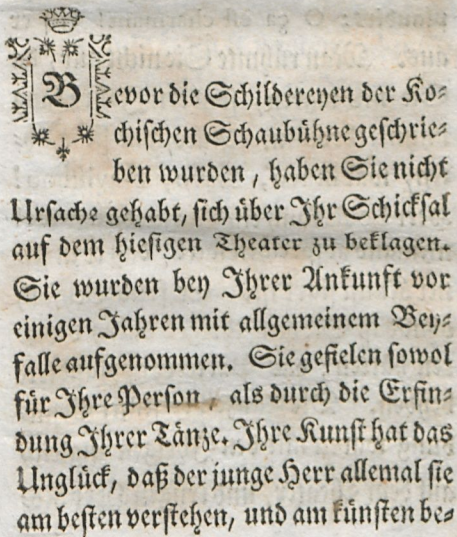 Bevor die Schildereyen der Ko-
chischen Schaubühne geschrie-
ben wurden, haben Sie nicht
Ursache gehabt, sich über Ihr Schicksal
auf dem hiesigen Theater zu beklagen.
Sie wurden bey Ihrer Ankunft vor
einigen Jahren mit allgemeinem Bey-
falle aufgenommen. Sie gefielen sowol
für Ihre Person, als durch die Erfin-
dung Ihrer Tänze. Ihre Kunst hat das
Unglück, daß der junge Herr allemal sie
am besten verstehen, und am künsten be-